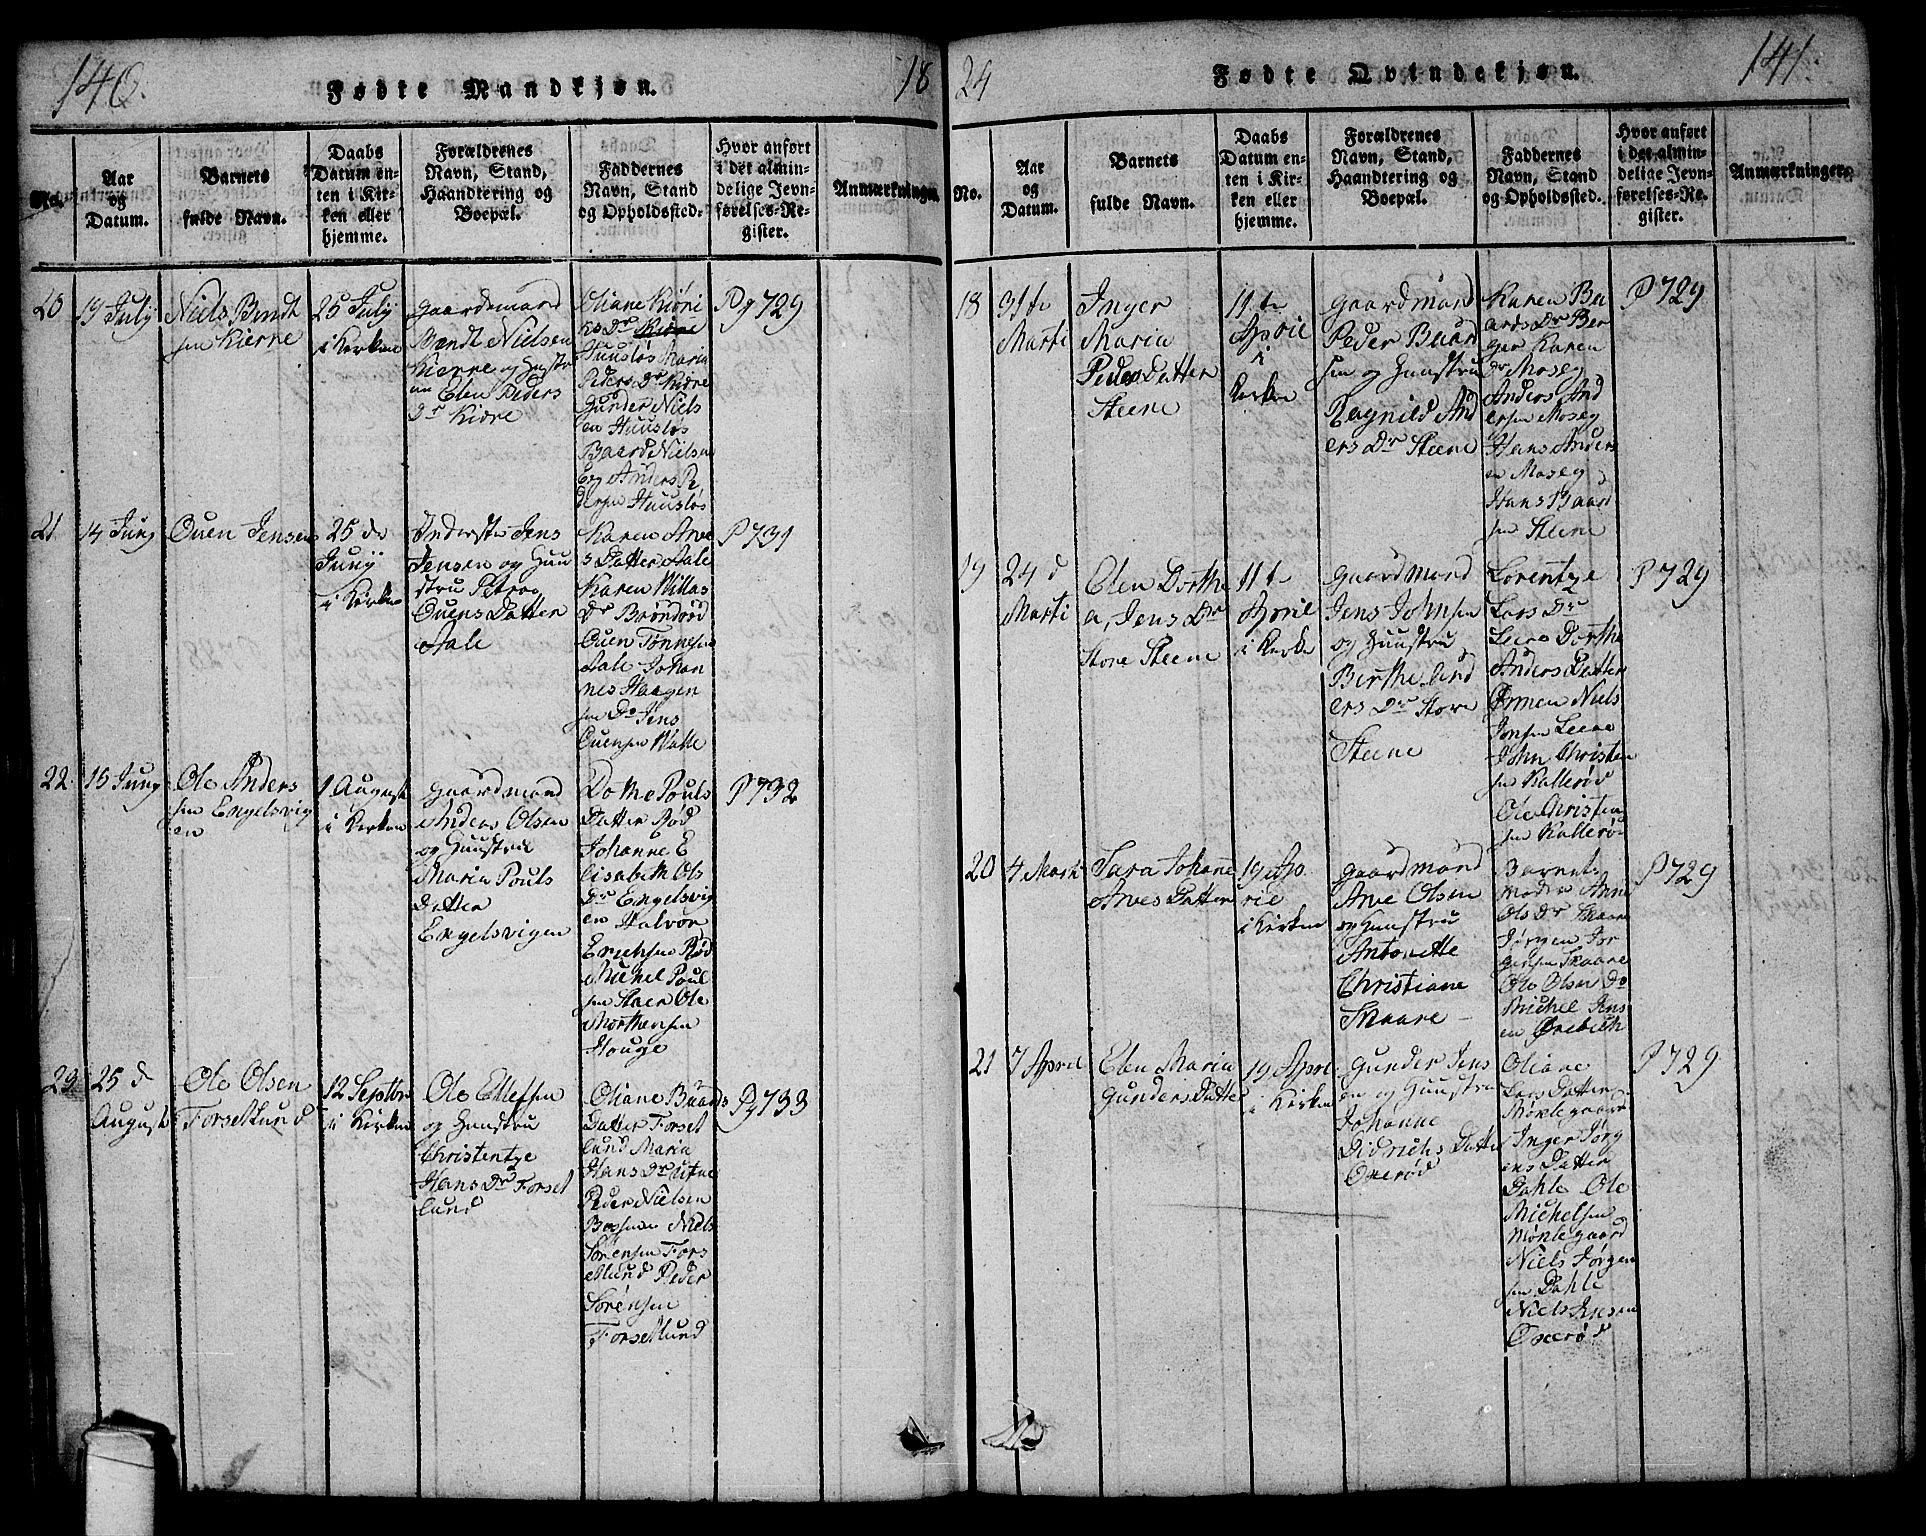 140.
Fødte Mandkjøn.
18
No.
Aar
og
Datum.
Barnets
fulde Navn.
Daabs
Datum en-
ten i Kir-
ken eller
hjemme.
Forældrenes
Navn, Stand,
Haandtering og
Boepæl.
Faddernes
Navn, Stand
og Opholdssted.
Hvor anført
i det almin-
delige Jevn-
førelses-Re-
gister.
Anmærkninger.
20
19 July
Niels Bendt
sen Kierre
25 July
i Kirken
gaardemand
Bendt Nielsen
Kierre og Hustr
u Elen Peders
Dr Kiøre
Oliane Kiøni
ks Dr
Huusløs Maria
Peders Dr Kiøre
Gunder Niels
en Huusløs
Baard Nielsen
Eeg Anders P
dersen Huusløs
Pg 729
21
14 Juny
Ouen Jensen
25 de
Juny
i Kirken
Inderste Jens
Jensen og Huu
stru Petrog
Ouens Datter
Aale
Karen Arve
s Datter Aale
Karen Willas
Dr Brøndrød
Ouen Tønnesen
Aale Johan
nes Haagen
sen Do Jens
Ouensen Walle
P 731
22
15 Juny
Ole Anders
sen Engelsvig
en
1 August
i Kirken
gaardmand
Anders Olsen
og Huustrue
Maria Pouls
Datter
Engelsvigen
Dothe Pouls
Datter Rød
Johanne E
lisabeth Ols
Dr Engelsvig
en Halvor
Erichsen Rød
Michel Poul
sen Staer Ole
Morthensen
Houge
P 732
23
25 d
August
Ole Olsen
Forsetlund
12 Septbr
i Kirken
Ole Ellefsen
og Huustru
Christentze
Hans Dr Forset
lund
Oliane Baards
Datter Forset
lund Maria
Hans Dr
Peder Nielsen
Niels
Sørensen Fors
etlund Peder
Sørensen
Forsetlund
Pg 733
24
Fødte Qvindekjøn.
141.
No.
Aar
og
Datum.
Barnets
fulde Navn.
Daabs
Datum en-
ten i Kir-
ken eller
hjemme.
Forældrenes
Navn, Stand,
Haandtering og
Boepæl.
Faddernes
Navn, Stand
og Opholdssted.
Hvor anført
i det almin-
delige Jevn-
førelses-Re-
gister.
Anmærkninger.
18
31te
Marti
Inger
Maria
Peders Datter
Steene
11te
Aprie
i
Kirken
gaardmand
Peder Baard
sen og Huustru
Ragnild And
ers Dr Steene
Karen Ba
ards Dr Ber
ger Karen
Dr Moseg
Anders And
ersen Moseg
Hans Anders
en Moseg
Hans Baard
sen Steene
P 729
19
24 d
Marti
Elen Dorthe
a, Jens Dr
Store Steene
11te
Aprie
i Kirke
gaardmand
Jens Johnsen
og Huustru
Berthe And
ers Dr Store
Steene
Lorentze
Lars Dr
Leire Dorthe
Anders Datter
Ørmen Niels
Jonsen Leere
John Christen
sen Kallerød
Ole Christen
sen Kallerø
P 729
20
4 Marti
Sara Johanne
Arves Datter
19 Ap
rie
i Kirken
gaardmand
Arve Olsen
og Huustru
Antonette
Christiane
Skaare
Barnets
Moder Anne
Ols Dr Skaare
Jørgen Jør
gensen Skaare
Ole Olsen Do
Michel Jens
en Ørebech
P 729
21
7 April
Elen Maria
Gunders Datte
19 Apri
i Kirken
Gunder Jens
en og Huustru
Johanne
Didrichs Datte
Oxerød
Oliane
Lars Datter
Mørkegaard
Inger Jørg
ens Datter
Dahle Ole
Michelsen
Mørkegaard
Niels Jørgen
sen Dahle
Niels Jensen
Oxerød
P 729